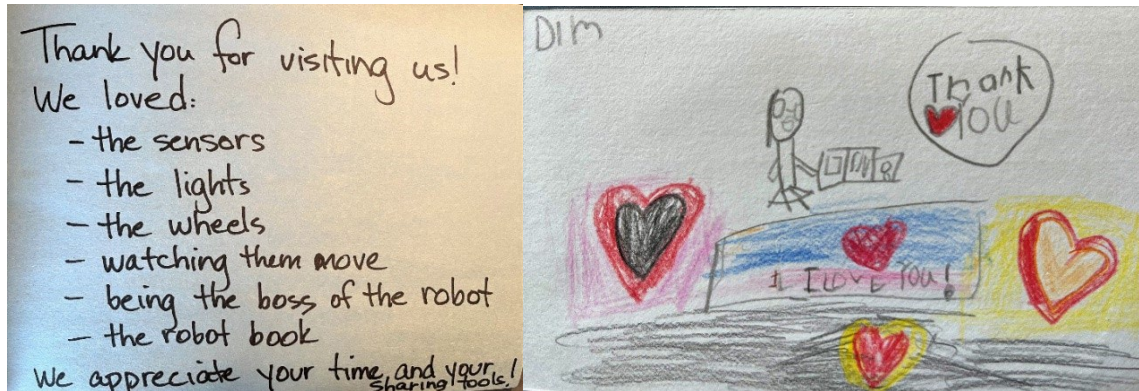 Thank you for visiting us!
We loved:
- the sensors
- the lights
- the wheels
- watching them move
- being the boss of the robot
- the robot book
We appreciate your time and your
sharing tools!
DIM
Thank
YOU
I LOVE YOU!